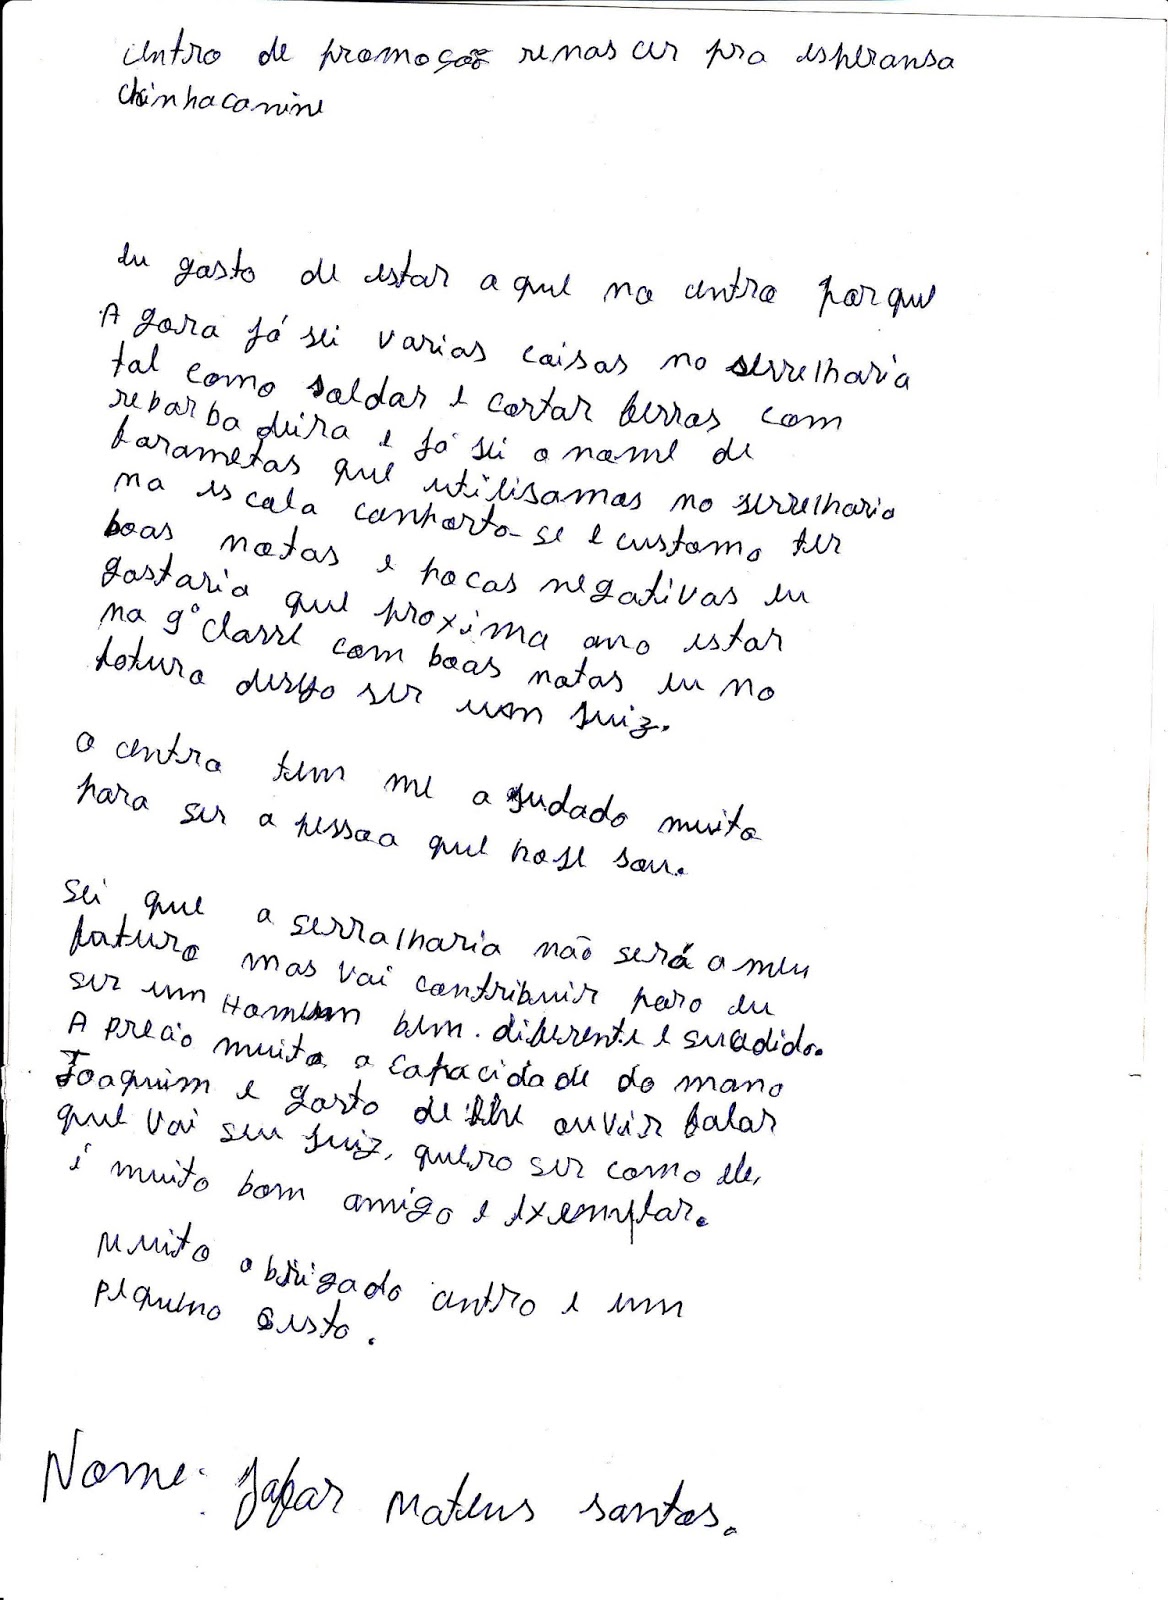 centro de promoção renascer pra esperansa
chinhacanine
eu gosto de estar a que no centro porque
A gora já sei varias coisas no serrelharia
tal como soldar e cortar ferros com
rebarba deira e já sei o nome de
farametas que utilisamos no serrelharia
na es cola comporto-se e customo ter
boas notas e pocas negativas eu
gostaria que proxima ano estar
na 9ª classe com boas notas eu no
foturo desejo ser um juiz.
o centro tem me a judado muito
para ser a pessoa que hoje sou.
sei que a serralharia não será o meu
faturo mas vai contribuir para eu
ser um Homem bem. diferente e sucedido.
A precio muito a capacidade do mano
Joaquim e gosto de lhe ouvir falar
que vai seu juiz, quero ser como ele,
é muito bom amigo e exemplar.
Muito obrigado centro e um
pequeno Gesto.
Nome: Jafar Mateus santos.